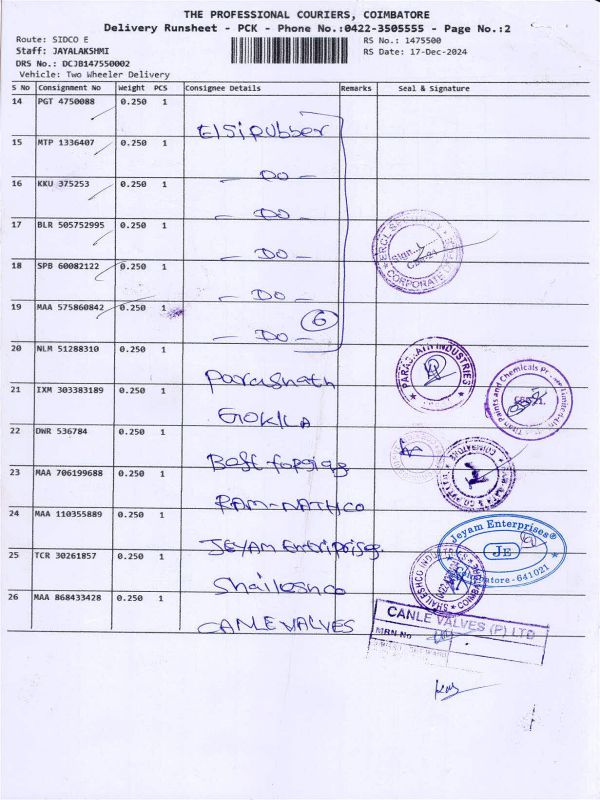 THE PROFESSIONAL COURIERS, COIMBATORE
Delivery Runsheet - PCK - Phone No.:0422-3505555 - Page No.:2
Route: SIDCO E RS No.: 1475500
Staff: JAYALAKSHMI RS Date: 17-Dec-2024
DRS No.: DCJB147550002
Vehicle: Two Wheeler Delivery
S No Consignment No Weight PCS Consignee Details Remarks Seal & Signature
14 PGT 4750088 0.250 1
Elsi rubber
15 MTP 1336407 0.250 1
- DO -
16 KKU 375253 0.250 1
- DO -
17 BLR 505752995 0.250 1
- DO -
18 SPB 60082122 0.250 1
- DO -
19 MAA 575860842 0.250 1
- DO - 6
20 NLM 51288310 0.250 1
PARASNATH INDUSTRIES
Parasnath
21 IXM 303383189 0.250 1
Titan Paints and Chemicals Private Limited
GOKILA
22 DWR 536784 0.250 1
COIMBATORE
23 MAA 706199688 0.250 1
RAM-NATHCO
24 MAA 110355889 0.250 1
Jeyam Enterprises®
JE
Coimbatore - 641021
JEYAM Enterprises
25 TCR 30261857 0.250 1
SHAILESHCO INDUSTRIES
Shaileshco
26 MAA 868433428 0.250 1
CANLE VALVES (P) LTD
MRN No
CANLE VALVES